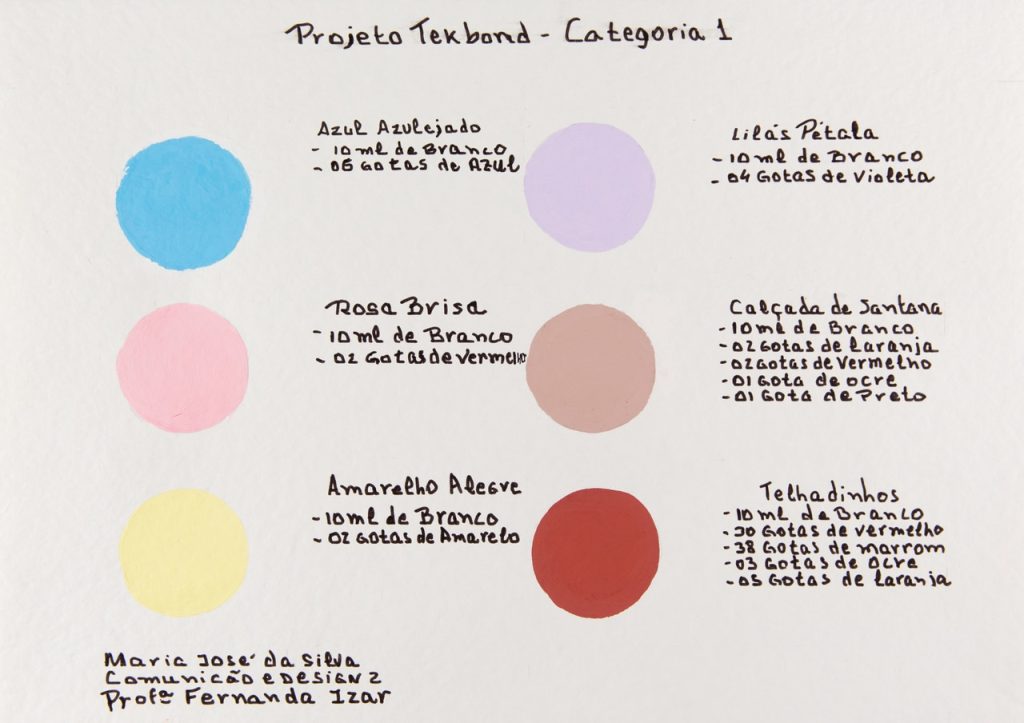 Projeto Tekbond - Categoria 1
Azul Azulejado
- 10 ml de Branco
- 05 Gotas de Azul
Lilás Pétala
- 10 ml de Branco
- 04 Gotas de Violeta
Rosa Brisa
- 10 ml de Branco
- 02 Gotas de Vermelho
Calçada de Santana
- 10 ml de Branco
- 02 Gotas de Laranja
- 02 Gotas de Vermelho
- 01 Gota de ocre
- 01 Gota de Preto
Amarelho Alegre
- 10 ml de Branco
- 02 Gotas de Amarelo
Telhadinhos
- 10 ml de Branco
- 30 Gotas de Vermelho
- 38 Gotas de marrom
- 03 Gotas de Ocre
- 05 Gotas de Laranja
Maria José da Silva
Comunicão e Design 2
Profª Fernanda Izar